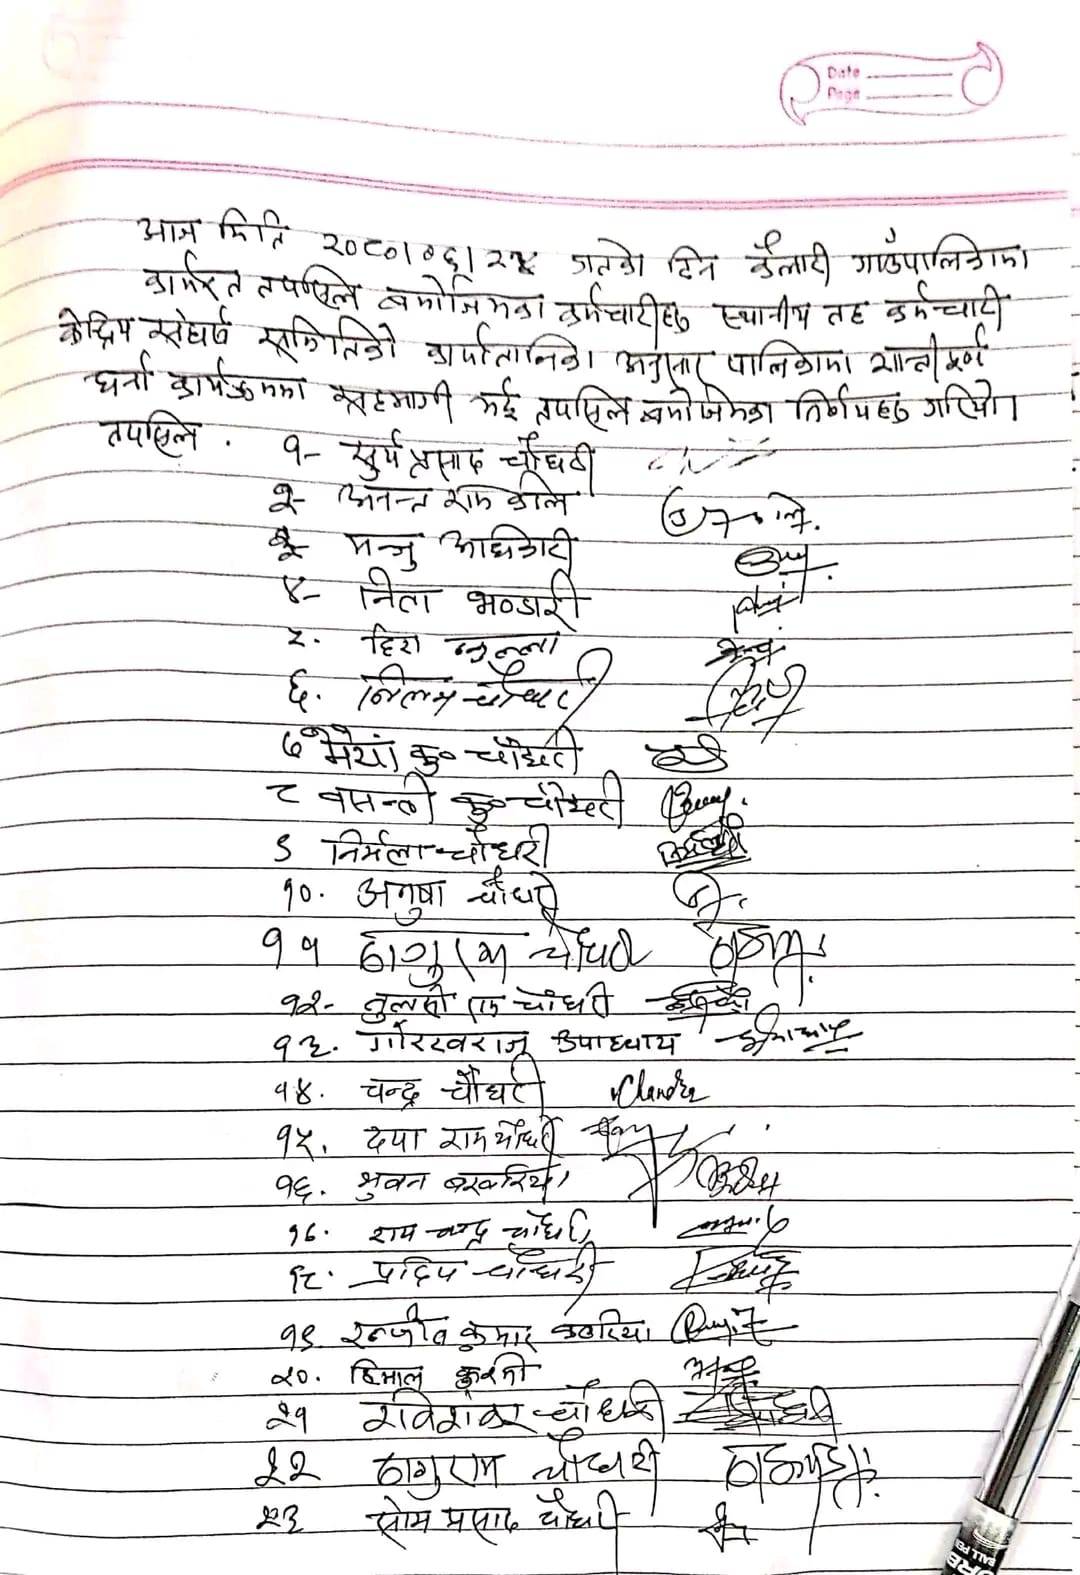 Date
Page
आज मिति २०८०।०६।२४ गतेका दिन कैलारी गाउँपालिकामा
कार्यरत तपसिल बमोजिमका कर्मचारीहरु स्थानीय तह कर्मचारी
केन्द्रिय संघर्ष समितिको कार्यतालिका अनुसार पालिकामा शान्तीपूर्ण
धर्ना कार्यक्रममा सहभागी भई तपसिल बमोजिमका निर्णयहरु गरियो।
तपसिल .
१- सुर्य प्रसाद चौधरी
२- अनन्त राम
३- मन्जु अधिकारी
४- निता भण्डारी
५. हिरा
६. निलम चौधरी
७ मैयां कु० चौधरी
८ बसन्ती कु० चौधरी
९ निर्मला चौधरी
१०. अनुषा चौधरी
११ ठागुराम चौधरी
१२- तुलसी राम चौधरी
१३. गोरखराज उपाध्याय
१४. चन्द्र चौधरी Chandra
१५. दया राम चौधरी
१६. भुवन बखरिया
१७. राम चन्द्र चौधरी
१८. प्रदिप चौधरी
१९. रन्जीत कुमार कठरिया
२०. हिमाल कुस्मी
२१ रविशंकर चौधरी
२२ ठागुराम चौधरी
२३ सोम प्रसाद चौधरी
BALL PEN